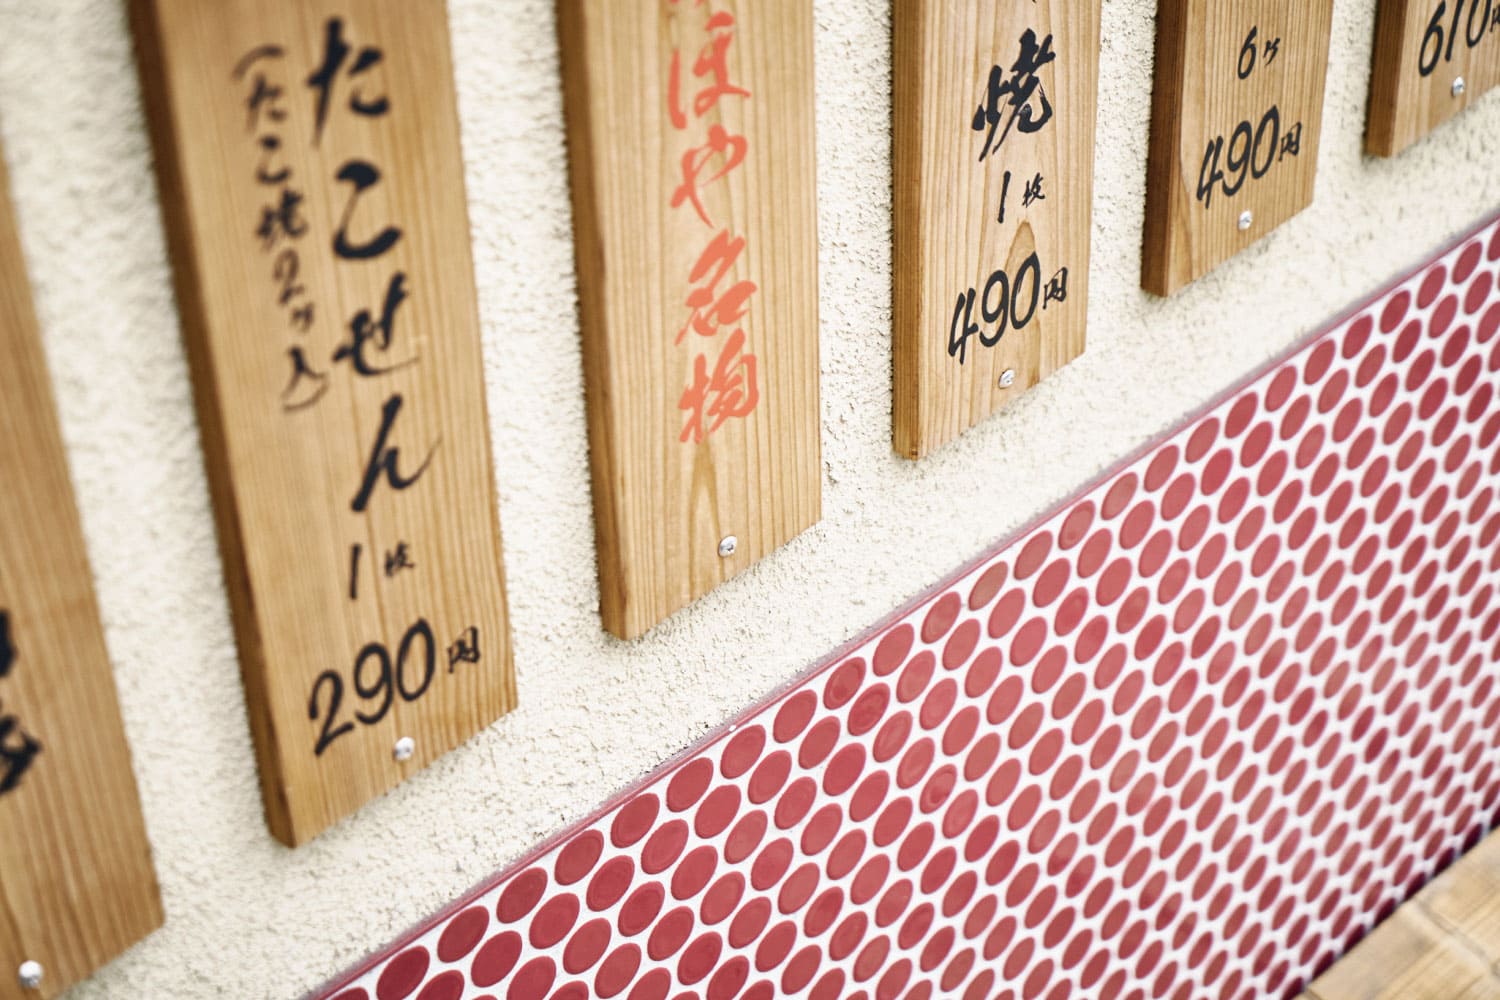 たこせん
(たこ焼2ヶ入)
1枚
290円
ほや名物
焼
1枚
490円
6ヶ
490円
610円